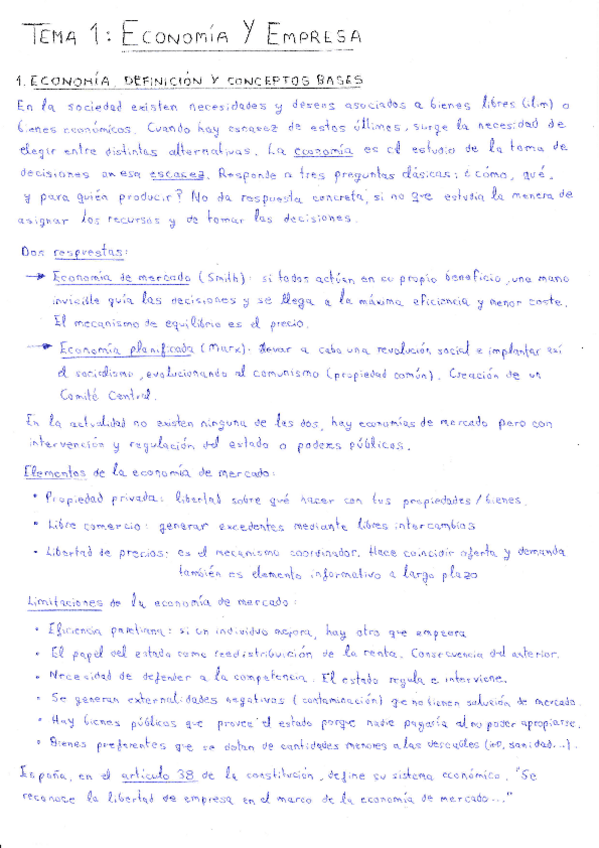 TEMA 1: ECONOMÍA Y EMPRESA
1. ECONOMÍA, DEFINICIÓN Y CONCEPTOS BASES
En la sociedad existen necesidades y deseos asociados a bienes libres (ilim) o
bienes económicos. Cuando hay escasez de estos últimos, surge la necesidad de
elegir entre distintas alternativas. La economía es el estudio de la toma de
decisiones en esa escasez. Responde a tres preguntas clásicas: ¿cómo, qué,
y para quién producir? No da respuesta concreta, si no que estudia la manera de
asignar los recursos y de tomar las decisiones.
Dos respuestas:
→ Economía de mercado (Smith): si todos actúan en su propio beneficio, una mano
invisible guía las decisiones y se llega a la máxima eficiencia y menor coste.
El mecanismo de equilibrio es el precio.
→ Economía planificada (Marx): llevar a cabo una revolución social e implantar así
el socialismo, evolucionando al comunismo (propiedad común). Creación de un
Comité Central.
En la actualidad no existen ninguna de las dos, hay economías de mercado pero con
intervención y regulación del estado o poderes públicos.
Elementos de la economía de mercado:
• Propiedad privada: libertad sobre qué hacer con tus propiedades / bienes.
• Libre comercio: generar excedentes mediante libres intercambios
• Libertad de precios: es el mecanismo coordinador. Hace coincidir oferta y demanda
también es elemento informativo a largo plazo
Limitaciones de la economía de mercado:
• Eficiencia paretiana: si un individuo mejora, hay otro que empeora
• El papel del estado como reedistribución de la renta. Consecuencia del anterior.
• Necesidad de defender a la competencia. El estado regula e interviene.
• Se generan externalidades negativas (contaminación) que no tienen solución de mercado.
• Hay bienes públicos que provee el estado porque nadie pagaría al no poder apropiarse.
• Bienes preferentes que se dotan de cantidades menores a las deseables (, sanidad...).
España, en el artículo 38 de la constitución, define su sistema económico. "Se
reconoce la libertad de empresa en el marco de la economía de mercado..."